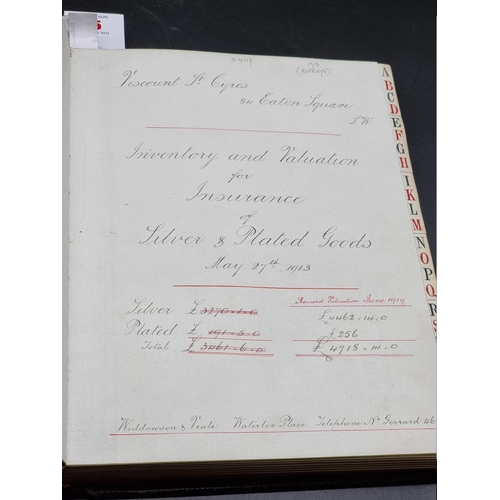 Viscount St. Cyres
84 Eaton Square
S.W.
Inventory and Valuation
for
Insurance
of
Silver & Plated Goods
May 27th 1913
Revised Valuation June 1919
Silver £ 3270-1-0 £4462-14-0
Plated £ 191-5-0 £256
Total £ 3461-6-0 £4718-14-0
Widdowson & Veale Waterloo Place Telephone No Gerrard 46
A
B
C
D
E
F
G
H
I
K
L
M
N
O
P
Q
R
S